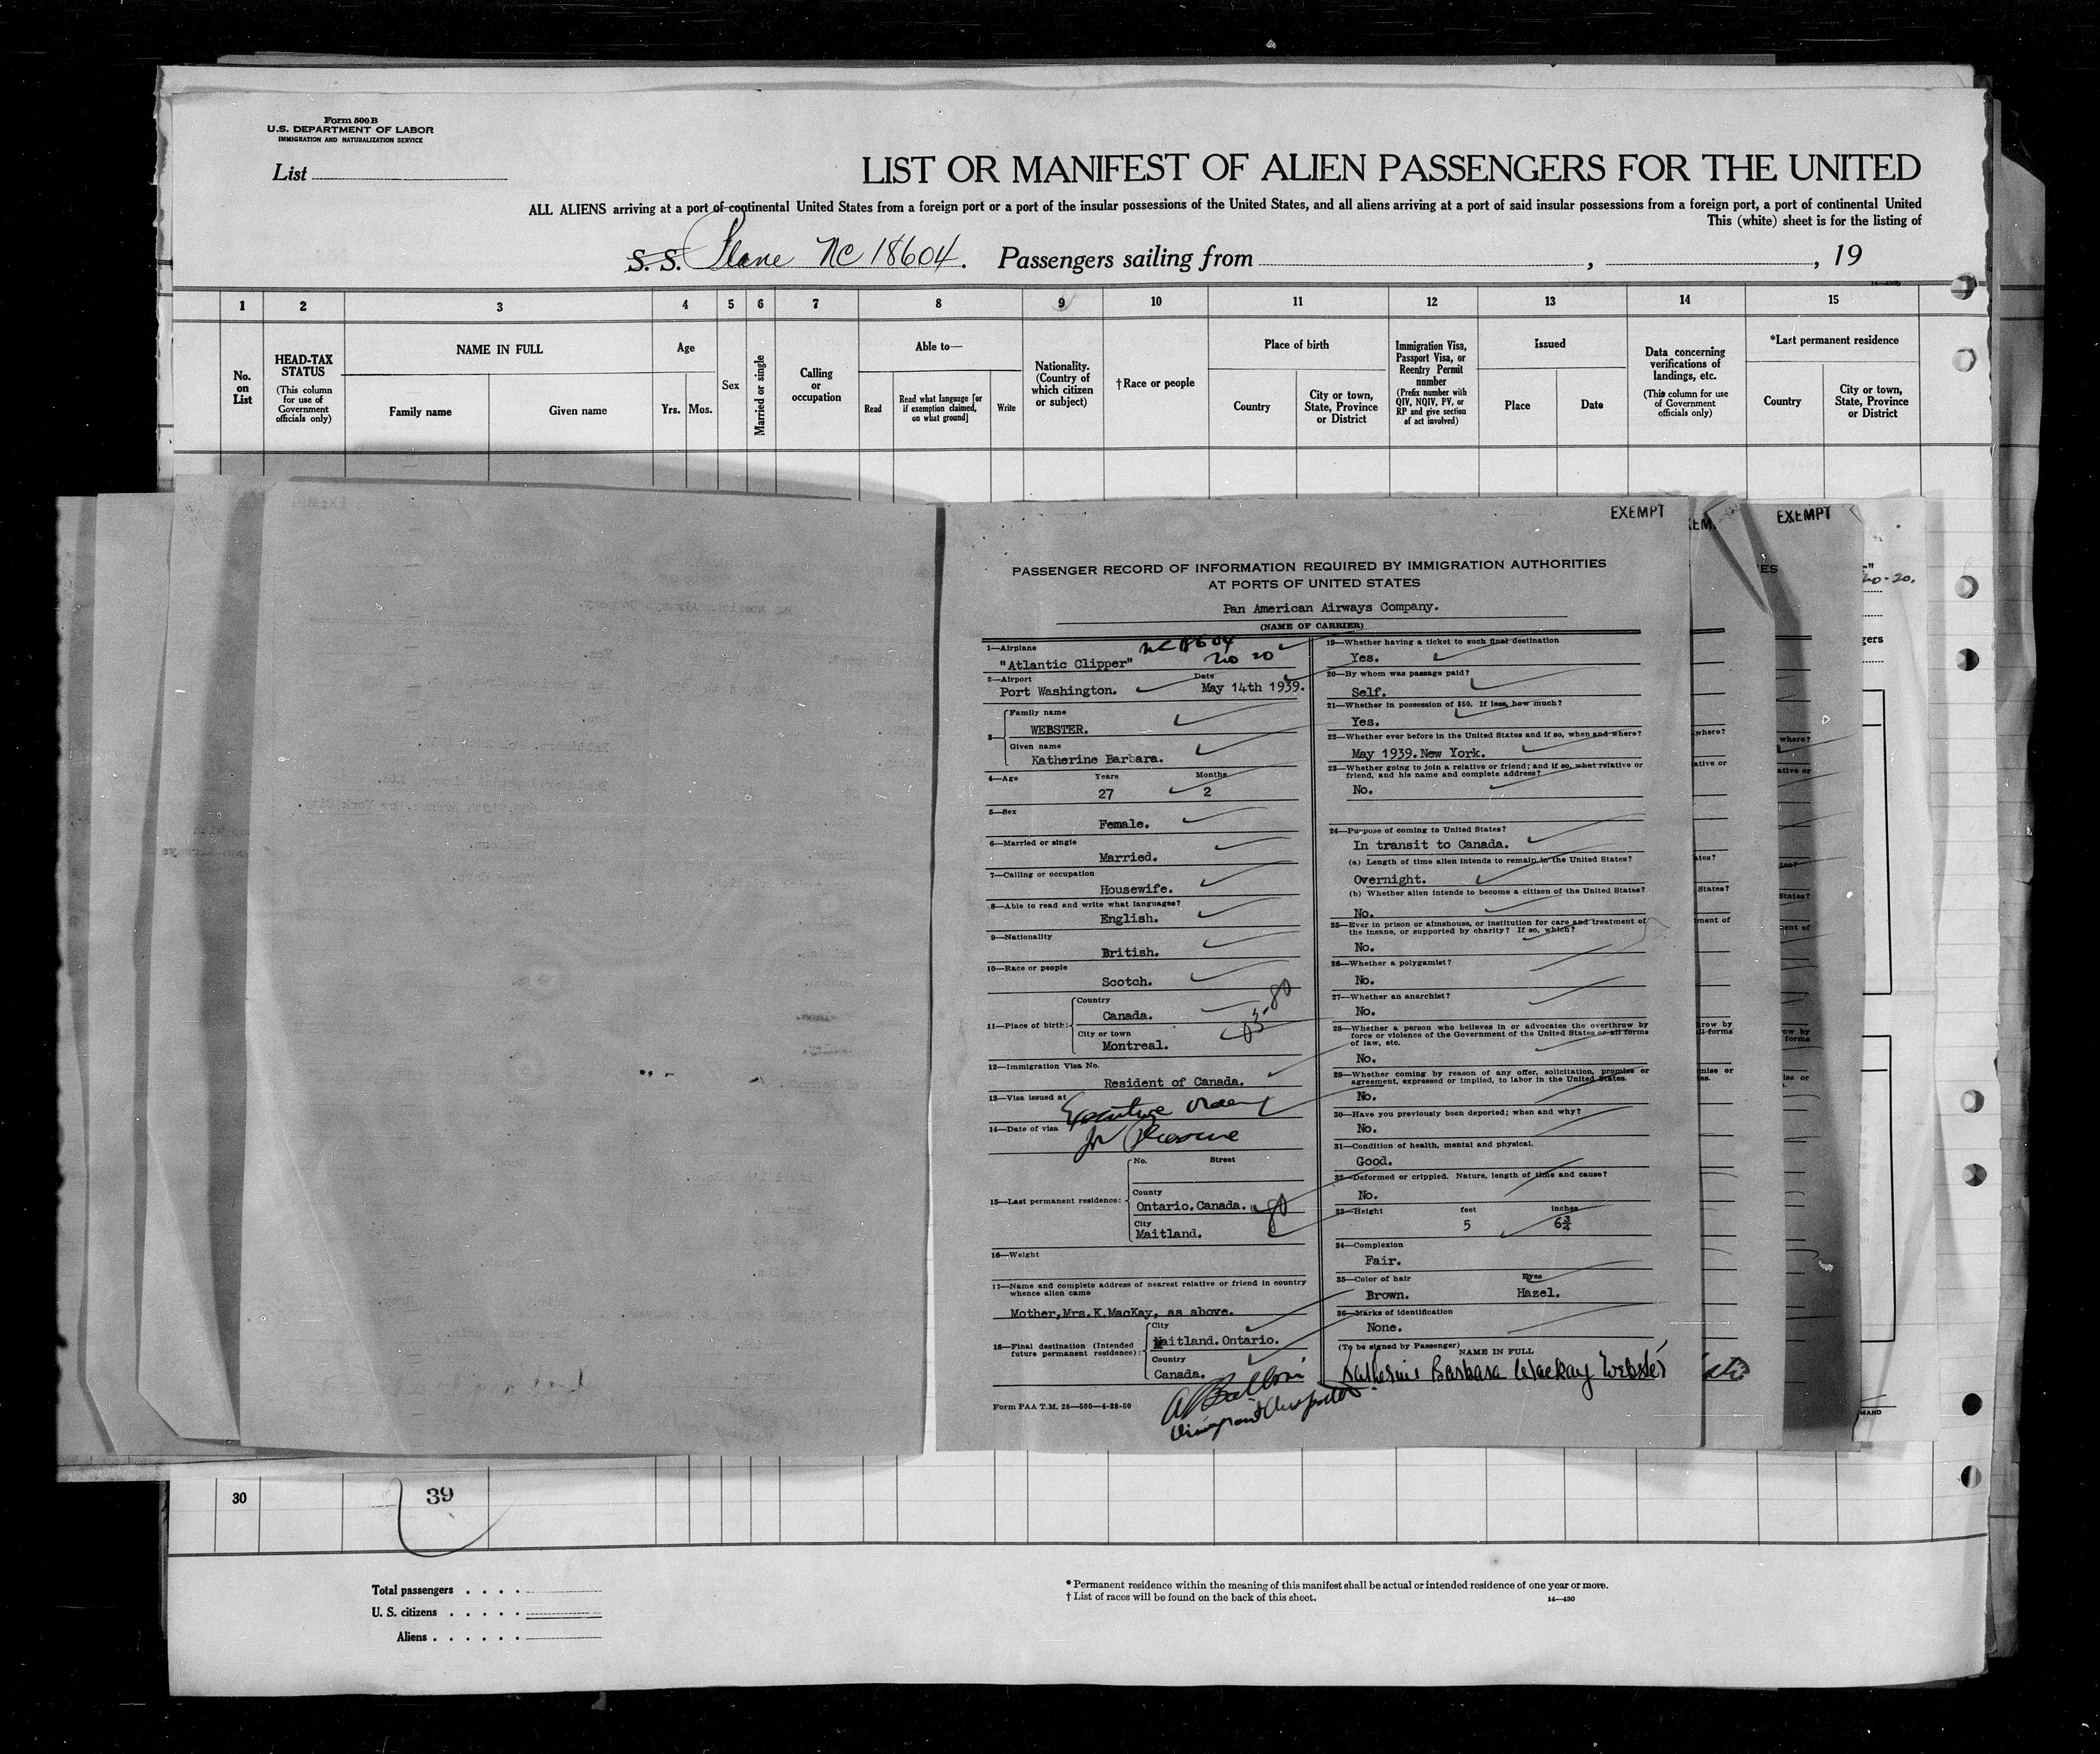 Form 500B
U.S. DEPARTMENT OF LABOR
IMMIGRATION AND NATURALIZATION SERVICE
List
LIST OR MANIFEST OF ALIEN PASSENGERS FOR THE UNITED
ALL ALIENS arriving at a port of continental United States from a foreign port or a port of the insular possessions of the United States, and all aliens arriving at a port of said insular possessions from a foreign port, a port of continental United
This (white) sheet is for the listing of
S. S. Plane NC 18604. Passengers sailing from , , 19
1 2 3 4 5 6 7 8 9 10 11 12 13 14 15
No. on List
HEAD-TAX STATUS
(This column for use of Government officials only)
NAME IN FULL
Family name
Given name
Age
Yrs. Mos.
Sex
Married or single
Calling or occupation
Able to—
Read
Read what language [or if exemption claimed, on what ground]
Write
Nationality. (Country of which citizen or subject)
†Race or people
Place of birth
Country
City or town, State, Province or District
Immigration Visa, Passport Visa, or Reentry Permit number
(Prefix number with QIV, NQIV, PV, or RP and give section of act involved)
Issued
Place
Date
Data concerning verifications of landings, etc.
(This column for use of Government officials only)
*Last permanent residence
Country
City or town, State, Province or District
EXEMPT
EXEMPT
PASSENGER RECORD OF INFORMATION REQUIRED BY IMMIGRATION AUTHORITIES
AT PORTS OF UNITED STATES
Pan American Airways Company.
(NAME OF CARRIER)
1—Airplane
NC 18604
"Atlantic Clipper"
2—Airport Date
Port Washington. May 14th 1939.
3
Family name
WEBSTER.
Given name
Katherine Barbara.
4—Age Years Months
27 2
5—Sex
Female.
6—Married or single
Married.
7—Calling or occupation
Housewife.
8—Able to read and write what languages?
English.
9—Nationality
British.
10—Race or people
Scotch.
11—Place of birth:
Country
Canada.
City or town
Montreal.
12—Immigration Visa No.
Resident of Canada.
13—Visa issued at
Executive Order
14—Date of visa
15—Last permanent residence:
No. Street
County
Ontario.Canada.
City
Maitland.
16—Weight
17—Name and complete address of nearest relative or friend in country whence alien came
Mother,Mrs.K.MacKay, as above.
18—Final destination (Intended future permanent residence):
City
Maitland.Ontario.
Country
Canada.
Form PAA T.M. 28—500—4-28-50
19—Whether having a ticket to such final destination
Yes.
20—By whom was passage paid?
Self.
21—Whether in possession of $50. If less, how much?
Yes.
22—Whether ever before in the United States and if so, when and where?
May 1939.New York.
23—Whether going to join a relative or friend; and if so, what relative or friend, and his name and complete address?
No.
24—Purpose of coming to United States?
In transit to Canada.
(a) Length of time alien intends to remain in the United States?
Overnight.
(b) Whether alien intends to become a citizen of the United States?
No.
25—Ever in prison or almshouse, or institution for care and treatment of the insane, or supported by charity? If so, which?
No.
26—Whether a polygamist?
No.
27—Whether an anarchist?
No.
28—Whether a person who believes in or advocates the overthrow by force or violence of the Government of the United States or all forms of law, etc.
No.
29—Whether coming by reason of any offer, solicitation, promise or agreement, expressed or implied, to labor in the United States.
No.
30—Have you previously been deported; when and why?
No.
31—Condition of health, mental and physical.
Good.
32—Deformed or crippled. Nature, length of time and cause?
No.
33—Height feet inches
5 6¾
34—Complexion
Fair.
35—Color of hair Eyes
Brown. Hazel.
36—Marks of identification
None.
(To be signed by Passenger)
NAME IN FULL
Katherine Barbara Mackay Webster
30
39
Total passengers
U. S. citizens
Aliens
* Permanent residence within the meaning of this manifest shall be actual or intended residence of one year or more.
† List of races will be found on the back of this sheet.
14—430